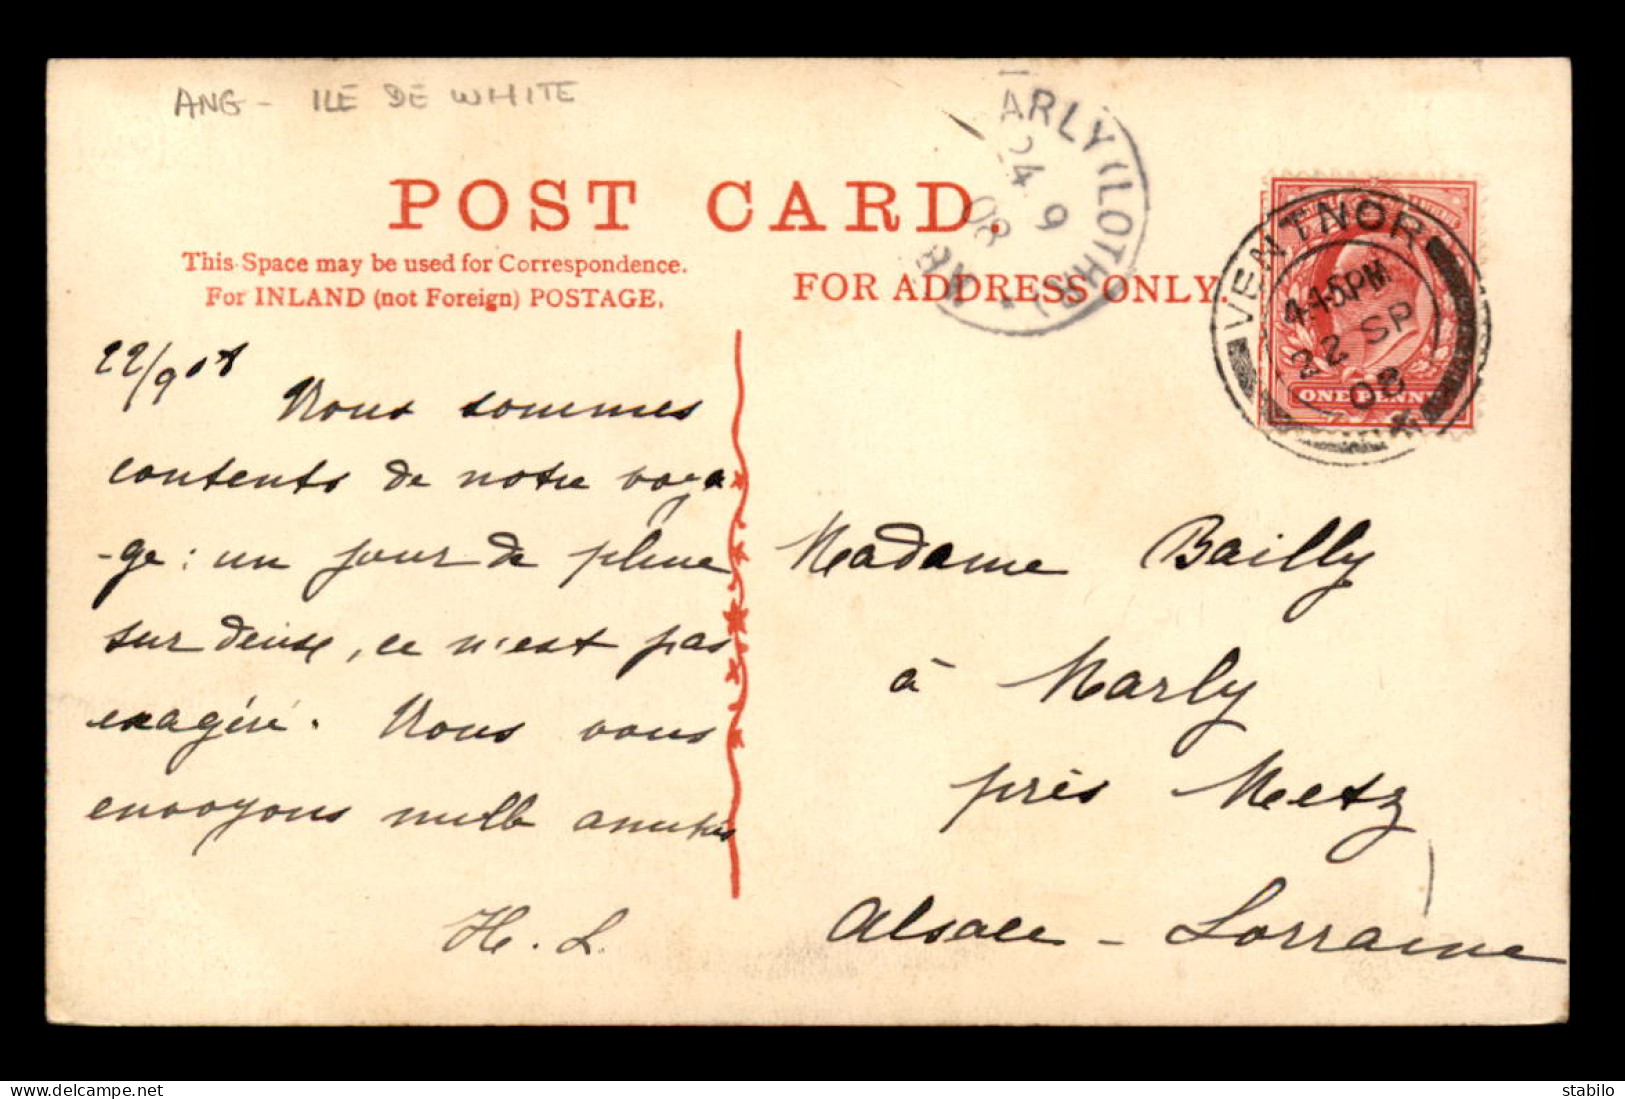 ANG - ILE DE WHITE
POST CARD.
This Space may be used for Correspondence.
For INLAND (not Foreign) POSTAGE.
FOR ADDRESS ONLY.
ARLY (LOTHR)
24 9
08
VENTNOR
4.15PM
22 SP
08
ONE PENNY
22/9 08
Nous sommes
contents de notre voya
-ge : un jour de pluie
sur deux, ce n'est pas
exagéré. Nous vous
envoyons mille amitiés
H. L.
Madame Bailly
à Marly
près Metz
Alsace - Lorraine
stabilo